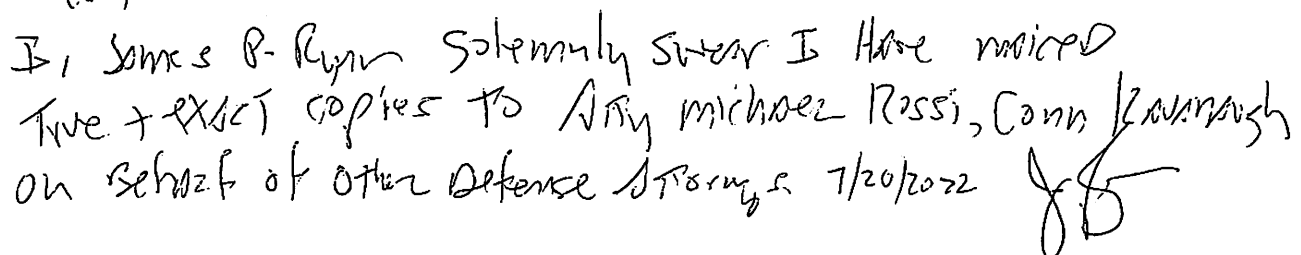 I, James P. Ryan Solemnly Swear I Have mailed
True + exact copies to Atty michael Rossi, Conn Kavanaugh
on Behalf of other Defense Attorneys 7/20/2022